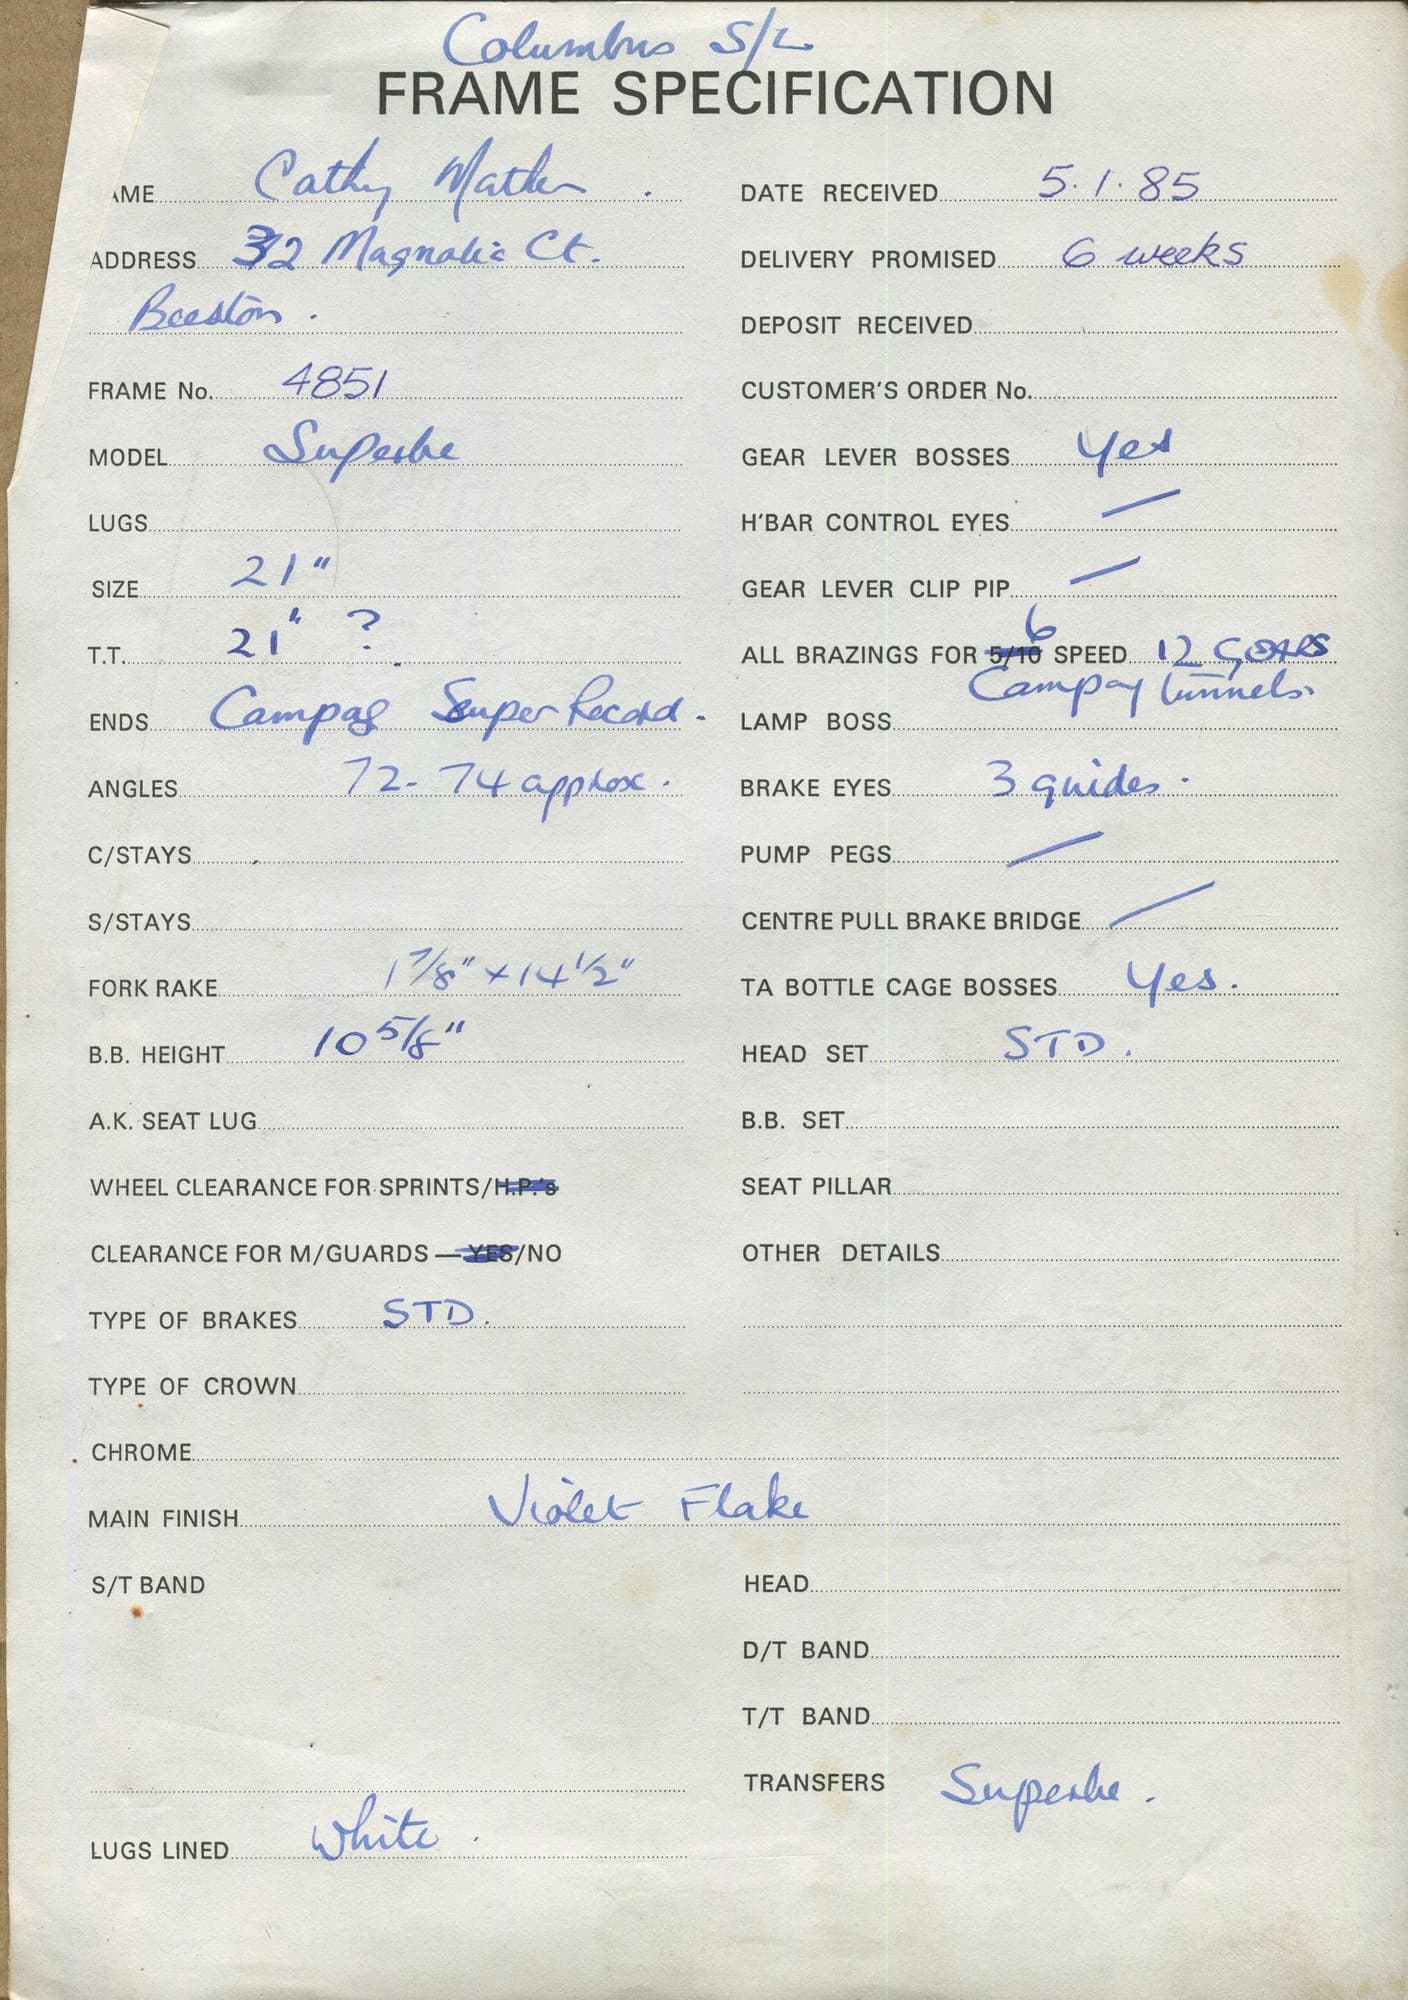 Columbus S/L
FRAME SPECIFICATION
AME Cathy Mather .
ADDRESS 32 Magnolia Ct.
Beeston .
FRAME No. 4851
MODEL Superbe
LUGS
SIZE 21"
T.T. 21" ? .
ENDS Campag Super Record.
ANGLES 72 - 74 approx.
C/STAYS
S/STAYS
FORK RAKE 1 7/8" x 14 1/2"
B.B. HEIGHT 10 5/8"
A.K. SEAT LUG
WHEEL CLEARANCE FOR SPRINTS/H.P.'s
CLEARANCE FOR M/GUARDS — YES/NO
TYPE OF BRAKES STD.
TYPE OF CROWN
DATE RECEIVED 5.1.85
DELIVERY PROMISED 6 weeks
DEPOSIT RECEIVED
CUSTOMER'S ORDER No.
GEAR LEVER BOSSES Yes
H'BAR CONTROL EYES —
GEAR LEVER CLIP PIP —
6
ALL BRAZINGS FOR 5/10 SPEED 12 GEARS
Campag tunnels.
LAMP BOSS
BRAKE EYES 3 guides .
PUMP PEGS —
CENTRE PULL BRAKE BRIDGE —
TA BOTTLE CAGE BOSSES Yes.
HEAD SET STD.
B.B. SET
SEAT PILLAR
OTHER DETAILS
CHROME
MAIN FINISH Violet Flake
S/T BAND
LUGS LINED White .
HEAD
D/T BAND
T/T BAND
TRANSFERS Superbe .